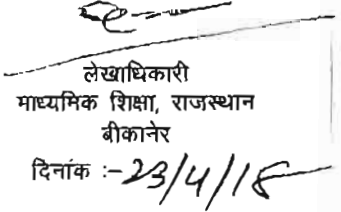 लेखाधिकारी
माध्यमिक शिक्षा, राजस्थान
बीकानेर
दिनांक :-23/4/18